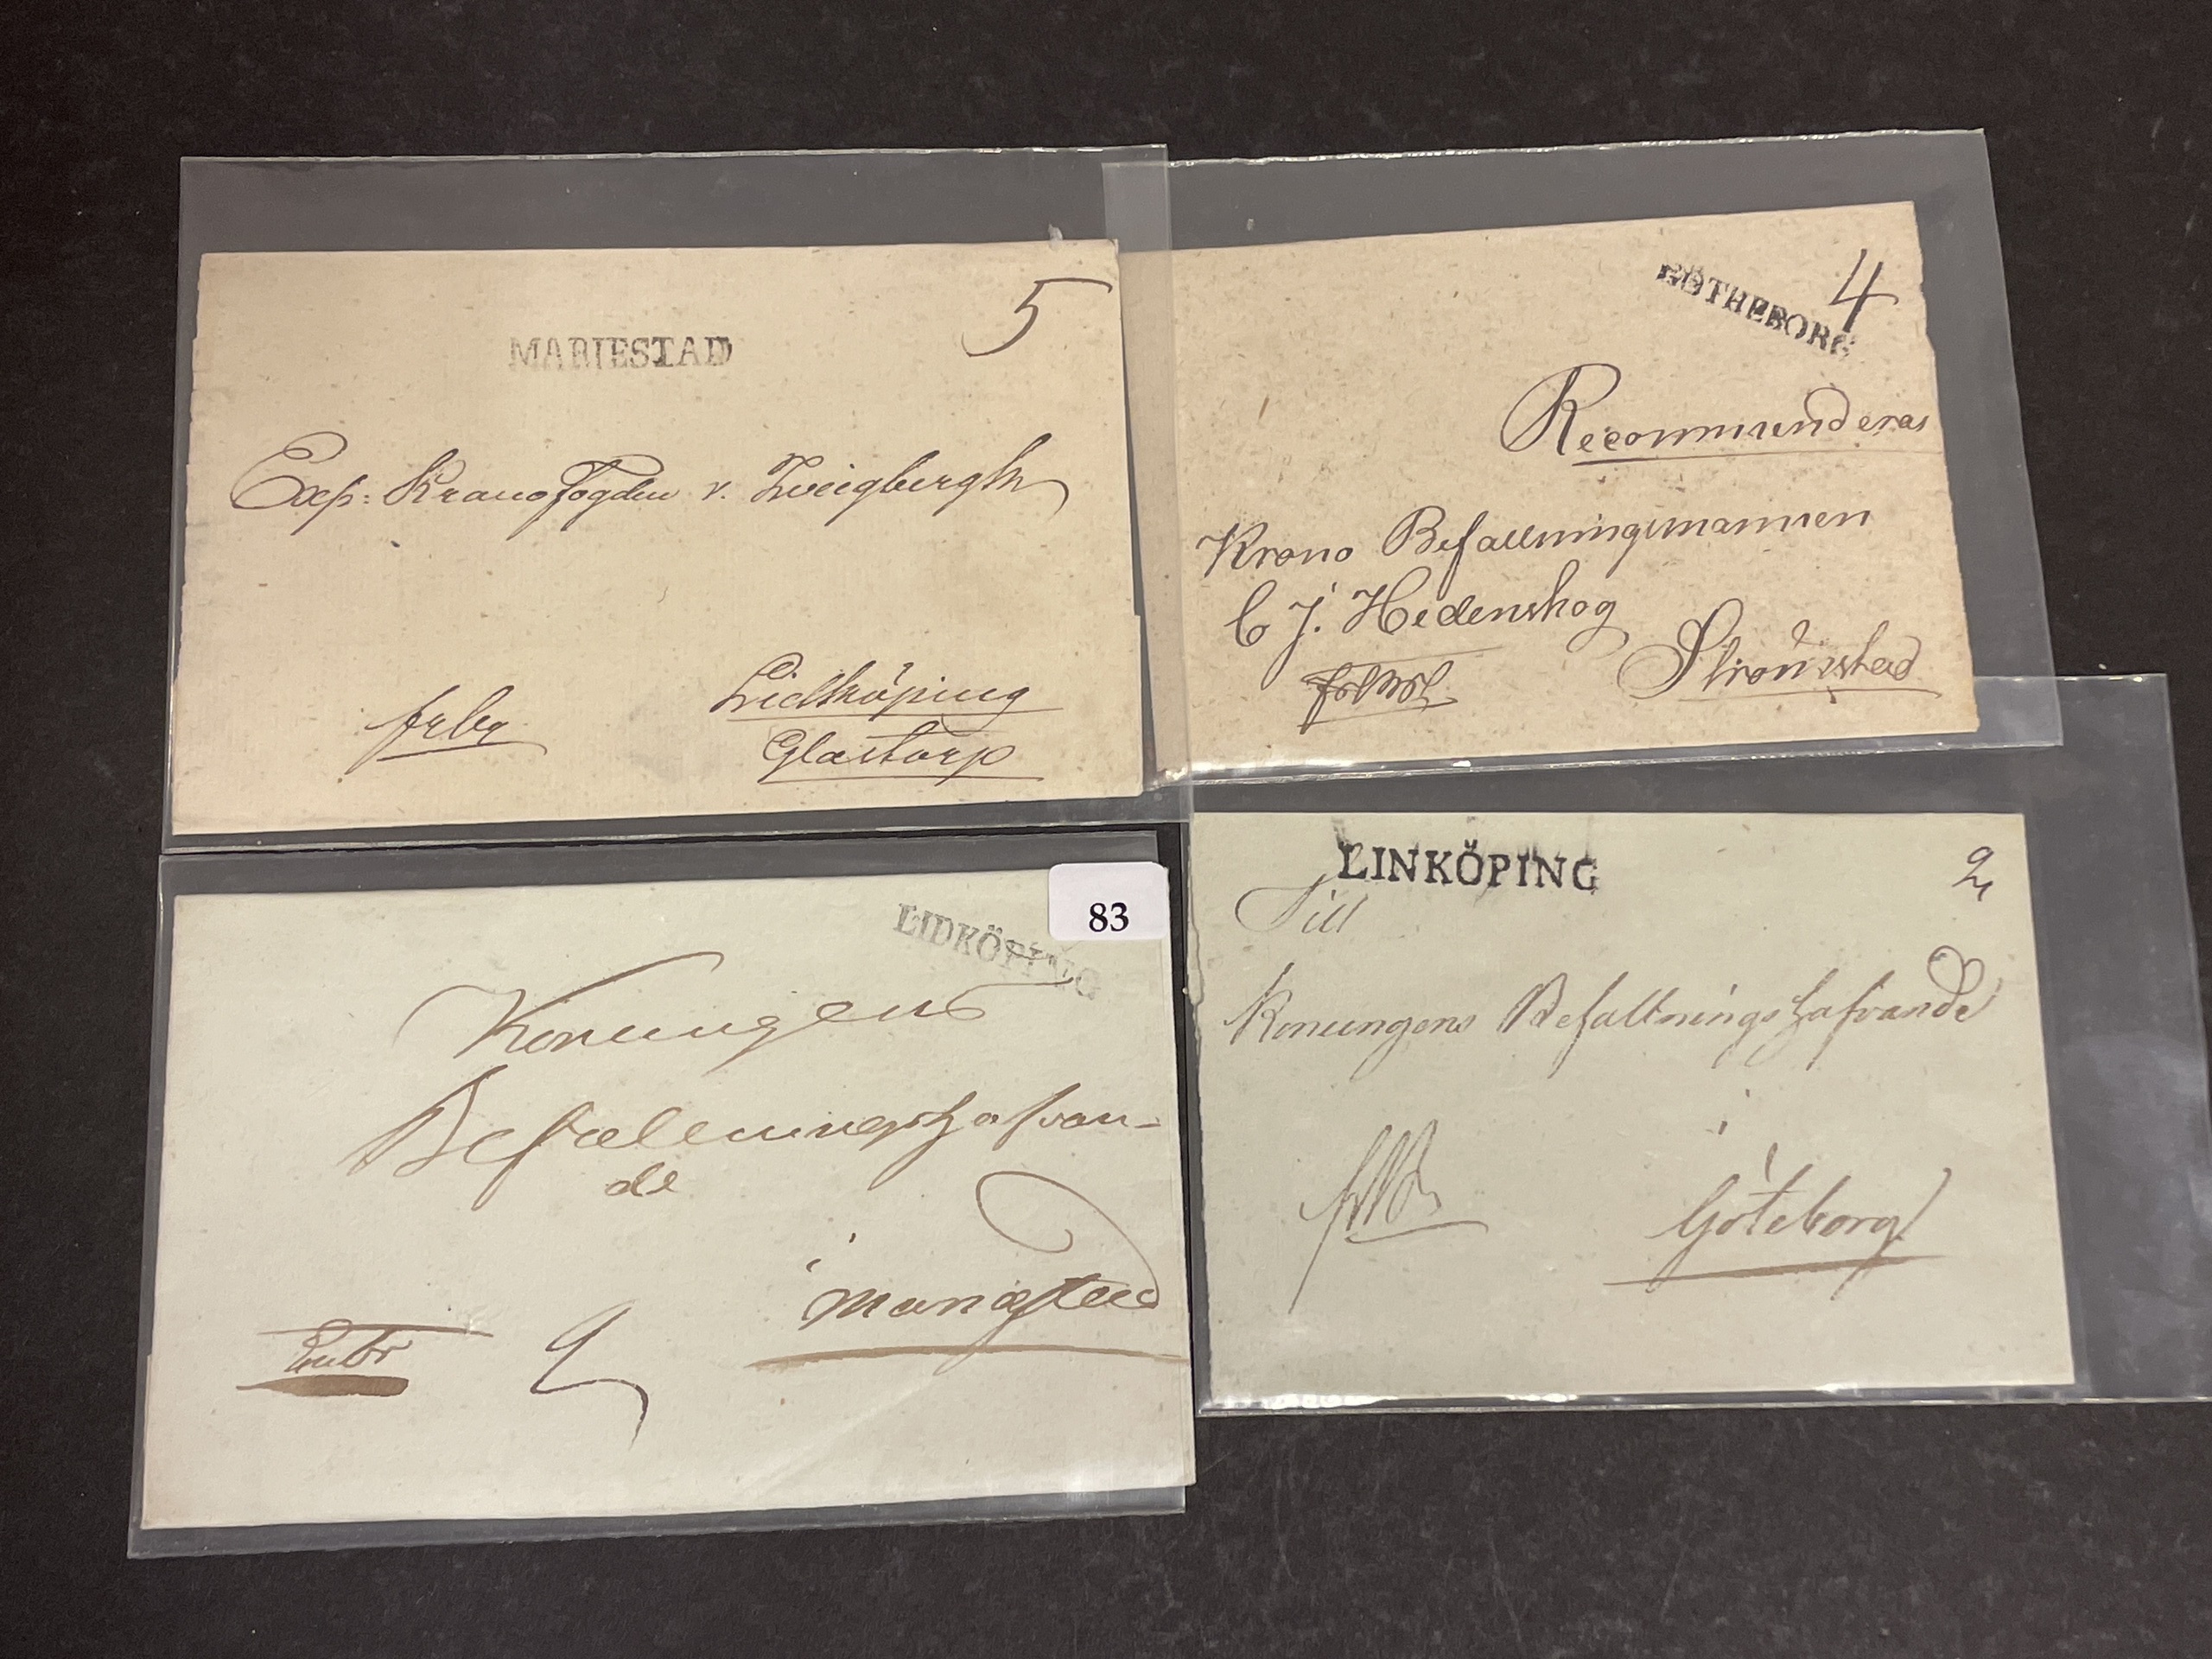 MARIESTAD
5
Exp: Kronofogden v. Zweigbergk
frbr
Lidköping
Glastorp
GÖTHEBORG
4
Recommenderas
Krono Befallningsmannen
C J. Hedenskog
Strömstad
LIDKÖPING
83
Konungens
Befalningshafvan-
de
i
Mariestad
2
LINKÖPING
2
Till
Konungens Befallningshafvande
i
Göteborg